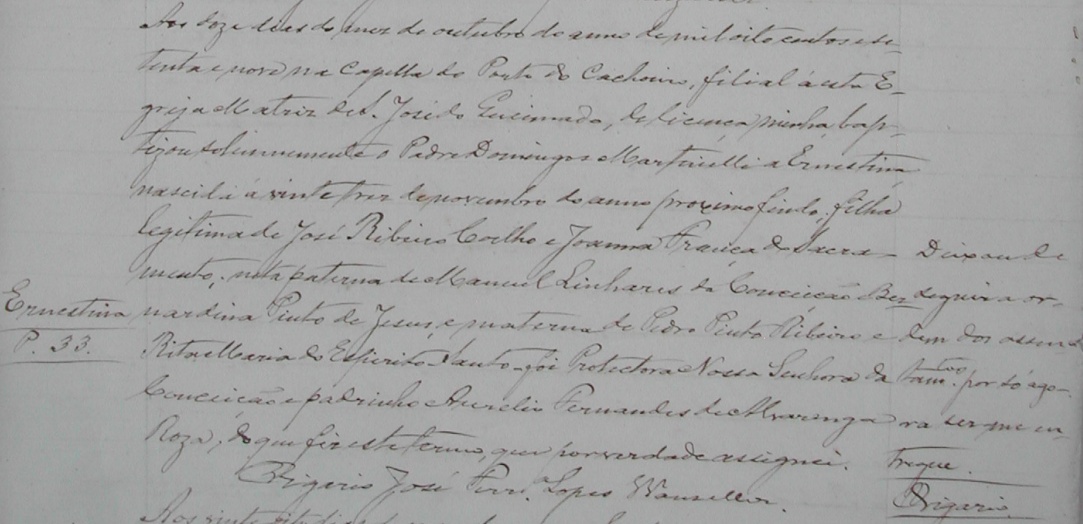 Aos doze dias do mez de outubro do anno de mil oito centos e se-
tenta e nove na Capella do Porto do Cachoeiro, filial á esta E-
greja Matriz de S. José do Queimado, de licença minha bap-
tizou solemnemente o Padre Domingos Martinelli a Ernestina
nascida á vinte trez de novembro do anno proximo findo, filha
legitima de José Ribeiro Coelho e Joanna França do Sacra-
mento; neta paterna de Manuel Linhares da Conceição Ber
nardina Pinto de Jesus, e materna de Pedro Pinto Ribeiro e
Rita Maria do Espirito Santo foi Protectora Nossa Senhora da
Conceição e padrinho Aurelio Fernandes de Alvarenga
Roza, do que fiz este termo, que por verdade assignei.
Vigario José Ferr. Lopes
Aos vinte
Ernestina
P. 33.
Deixou de
seguir a or-
dem dos assen
tam.tos por só ago-
ra ser me en-
tregue.
Vigario